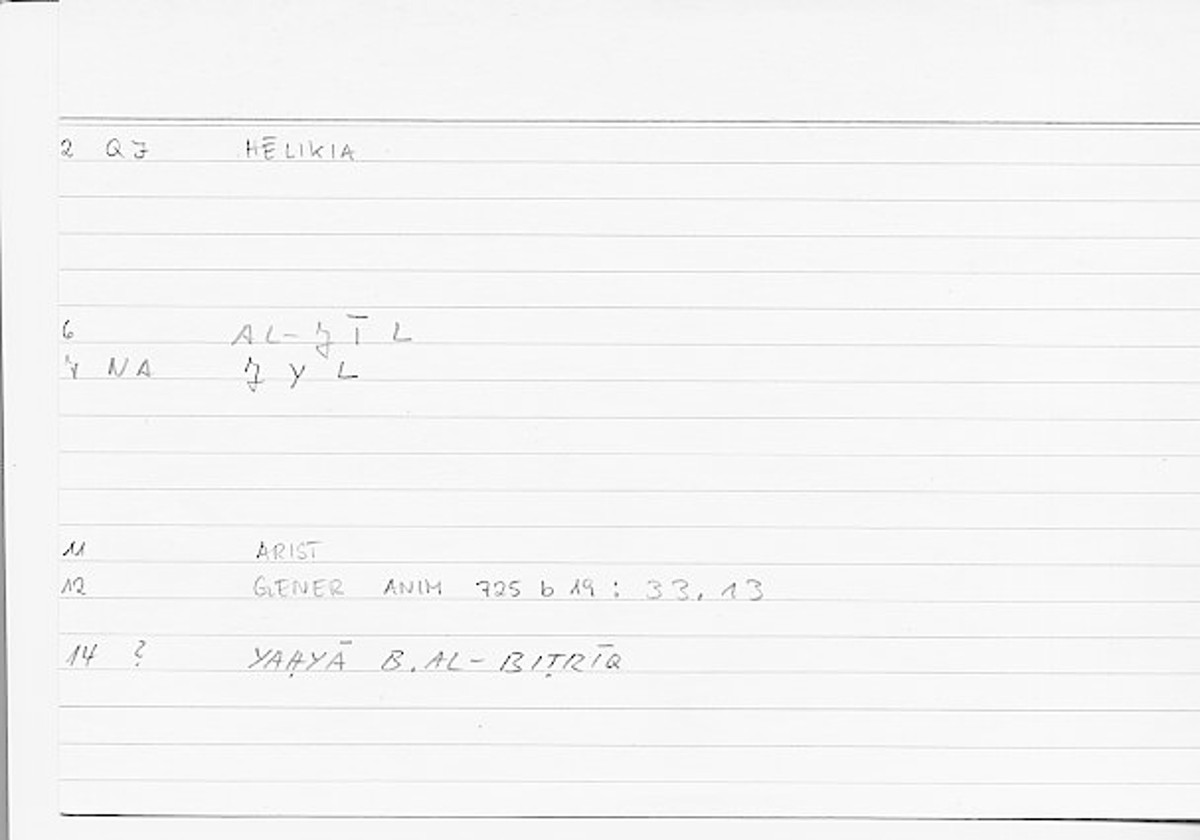 2 QJ HĒLIKIA
6 AL-ǦĪL
7 NA ǦYL
11 ARIST
12 GENER ANIM 725 b 19 : 33,13
14 ? YAḤYĀ B. AL-BIṬRĪQ